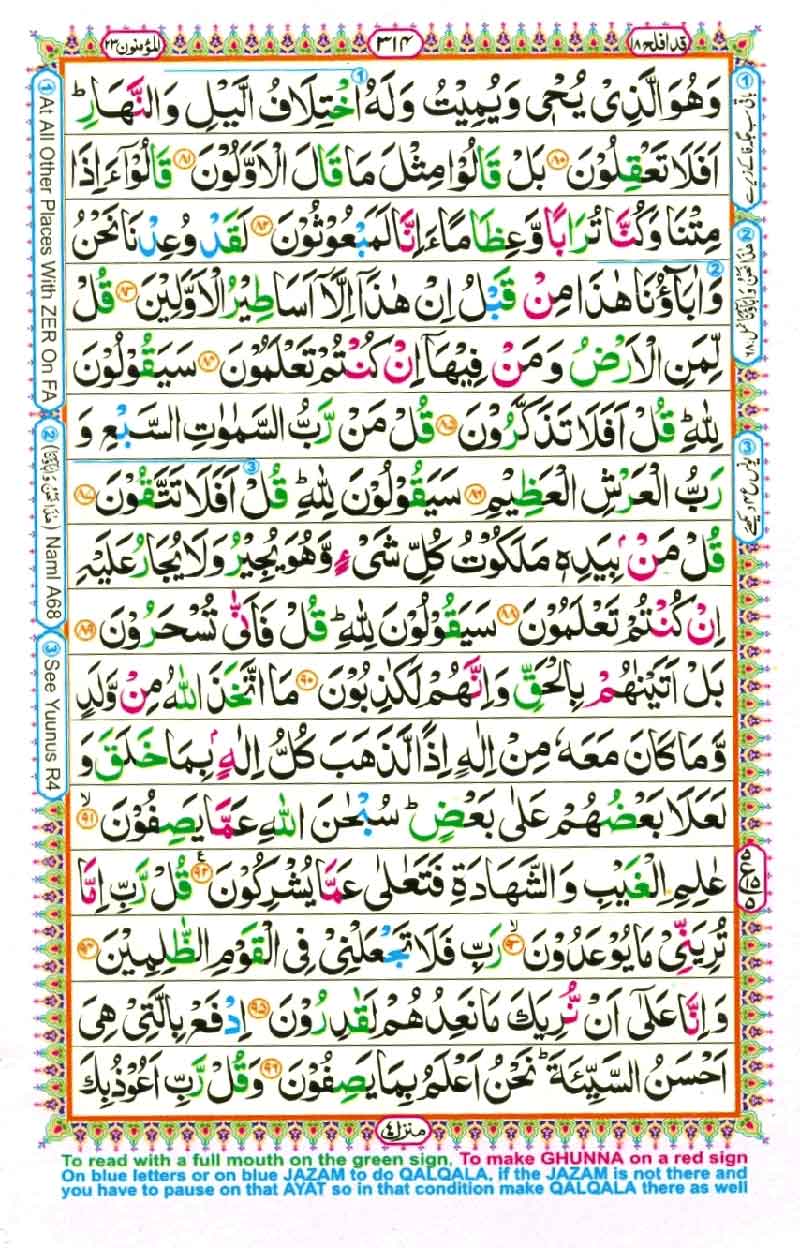 المؤمنون ٢٣
٣١٤
قد افلح ١٨
وَهُوَ الَّذِیْ یُحْیٖ وَیُمِیْتُ وَلَهُ اخْتِلَافُ الَّیْلِ وَالنَّهَارِ ؕ
اَفَلَا تَعْقِلُوْنَ ۟۸۰ بَلْ قَالُوْا مِثْلَ مَا قَالَ الْاَوَّلُوْنَ ۟۸۱ قَالُوْۤا ءَاِذَا
مِتْنَا وَكُنَّا تُرَابًا وَّعِظَامًا ءَاِنَّا لَمَبْعُوْثُوْنَ ۟۸۲ لَقَدْ وُعِدْنَا نَحْنُ
وَاٰبَآؤُنَا هٰذَا مِنْ قَبْلُ اِنْ هٰذَاۤ اِلَّاۤ اَسَاطِیْرُ الْاَوَّلِیْنَ ۟۸۳ قُلْ
لِّمَنِ الْاَرْضُ وَمَنْ فِیْهَاۤ اِنْ كُنْتُمْ تَعْلَمُوْنَ ۟۸۴ سَیَقُوْلُوْنَ
لِلّٰهِ ؕ قُلْ اَفَلَا تَذَكَّرُوْنَ ۟۸۵ قُلْ مَنْ رَّبُّ السَّمٰوٰتِ السَّبْعِ وَ
رَبُّ الْعَرْشِ الْعَظِیْمِ ۟۸۶ سَیَقُوْلُوْنَ لِلّٰهِ ؕ قُلْ اَفَلَا تَتَّقُوْنَ ۟۸۷
قُلْ مَنْ بِیَدِهٖ مَلَكُوْتُ كُلِّ شَیْءٍ وَّهُوَ یُجِیْرُ وَلَا یُجَارُ عَلَیْهِ
اِنْ كُنْتُمْ تَعْلَمُوْنَ ۟۸۸ سَیَقُوْلُوْنَ لِلّٰهِ ؕ قُلْ فَاَنّٰی تُسْحَرُوْنَ ۟۸۹
بَلْ اَتَیْنٰهُمْ بِالْحَقِّ وَاِنَّهُمْ لَكٰذِبُوْنَ ۟۹۰ مَا اتَّخَذَ اللّٰهُ مِنْ وَّلَدٍ
وَّمَا كَانَ مَعَهٗ مِنْ اِلٰهٍ اِذًا لَّذَهَبَ كُلُّ اِلٰهٍۭ بِمَا خَلَقَ وَ
لَعَلَا بَعْضُهُمْ عَلٰی بَعْضٍ ؕ سُبْحٰنَ اللّٰهِ عَمَّا یَصِفُوْنَ ۟ۙ۹۱
عٰلِمِ الْغَیْبِ وَالشَّهَادَةِ فَتَعٰلٰی عَمَّا یُشْرِكُوْنَ ۟۹۲ قُلْ رَّبِّ اِمَّا
تُرِیَنِّیْ مَا یُوْعَدُوْنَ ۟ۙ۹۳ رَبِّ فَلَا تَجْعَلْنِیْ فِی الْقَوْمِ الظّٰلِمِیْنَ ۟۹۴
وَاِنَّا عَلٰۤی اَنْ نُّرِیَكَ مَا نَعِدُهُمْ لَقٰدِرُوْنَ ۟۹۵ اِدْفَعْ بِالَّتِیْ هِیَ
اَحْسَنُ السَّیِّئَةَ ؕ نَحْنُ اَعْلَمُ بِمَا یَصِفُوْنَ ۟۹۶ وَقُلْ رَّبِّ اَعُوْذُ بِكَ
منزل ٤
① At All Other Places With ZER On FA
② (هٰذَا نَحْنُ وَاٰبَآؤُنَا) Naml A68
③ See Yuunus R4
To read with a full mouth on the green sign, To make GHUNNA on a red sign
On blue letters or on blue JAZAM to do QALQALA, if the JAZAM is not there and
you have to pause on that AYAT so in that condition make QALQALA there as well